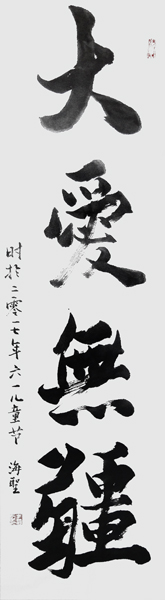 大愛無疆
时於二零一七年六一儿童节 海聖